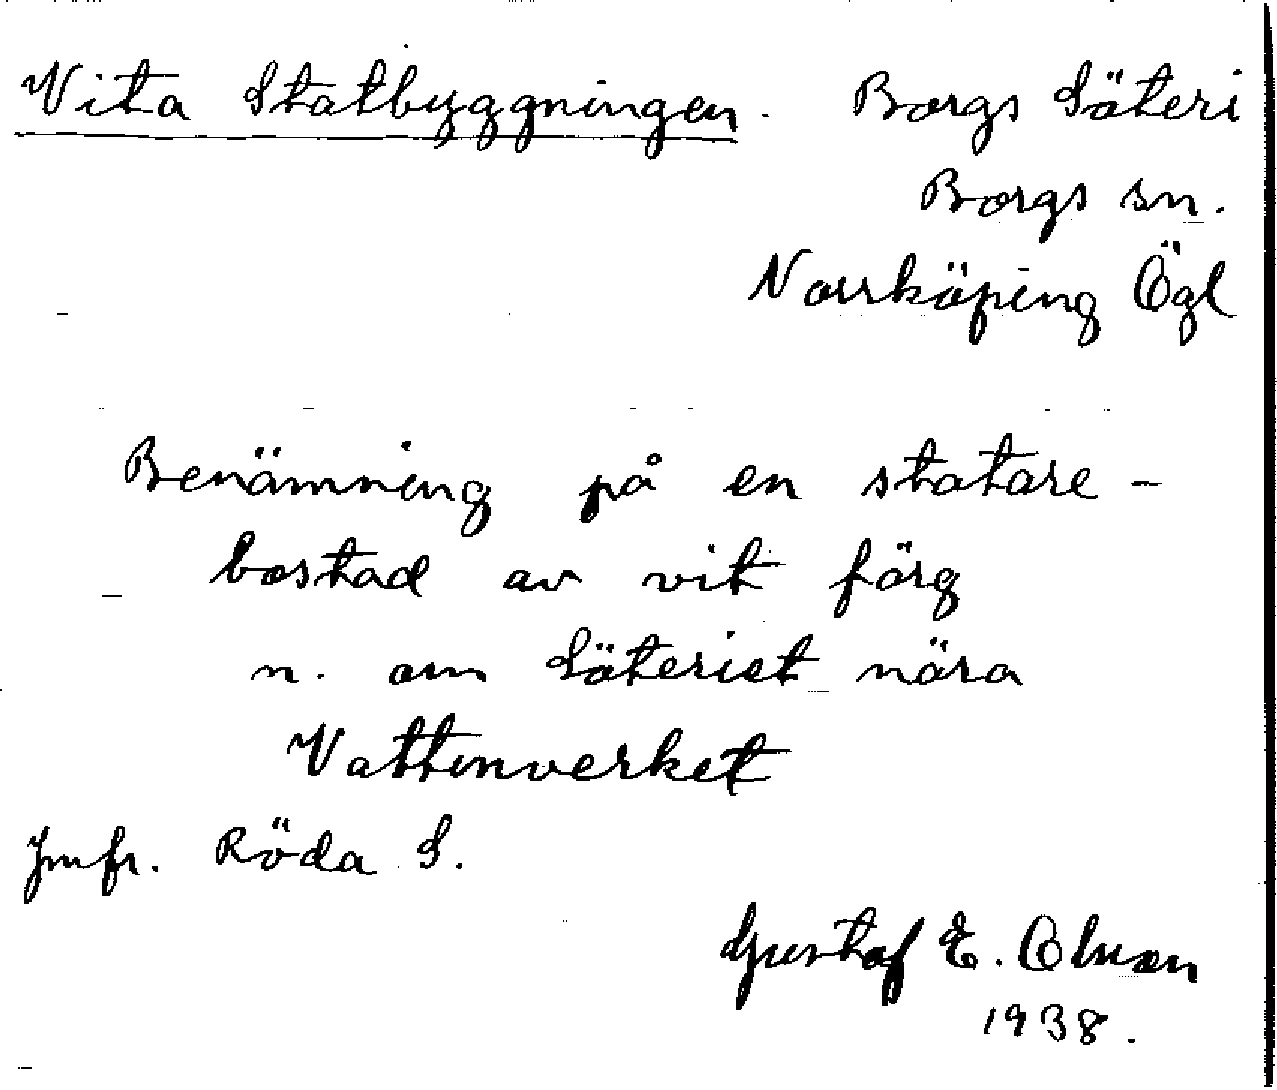 Vita Statbyggningen. Borgs Säteri
Borgs sn.
Norrköping Ögl
Benämning på en statare-
bostad av vit färg
n. om Säteriet nära
Vattenverket
Jmfr. Röda S.
Gustaf E. Olsson
1938.